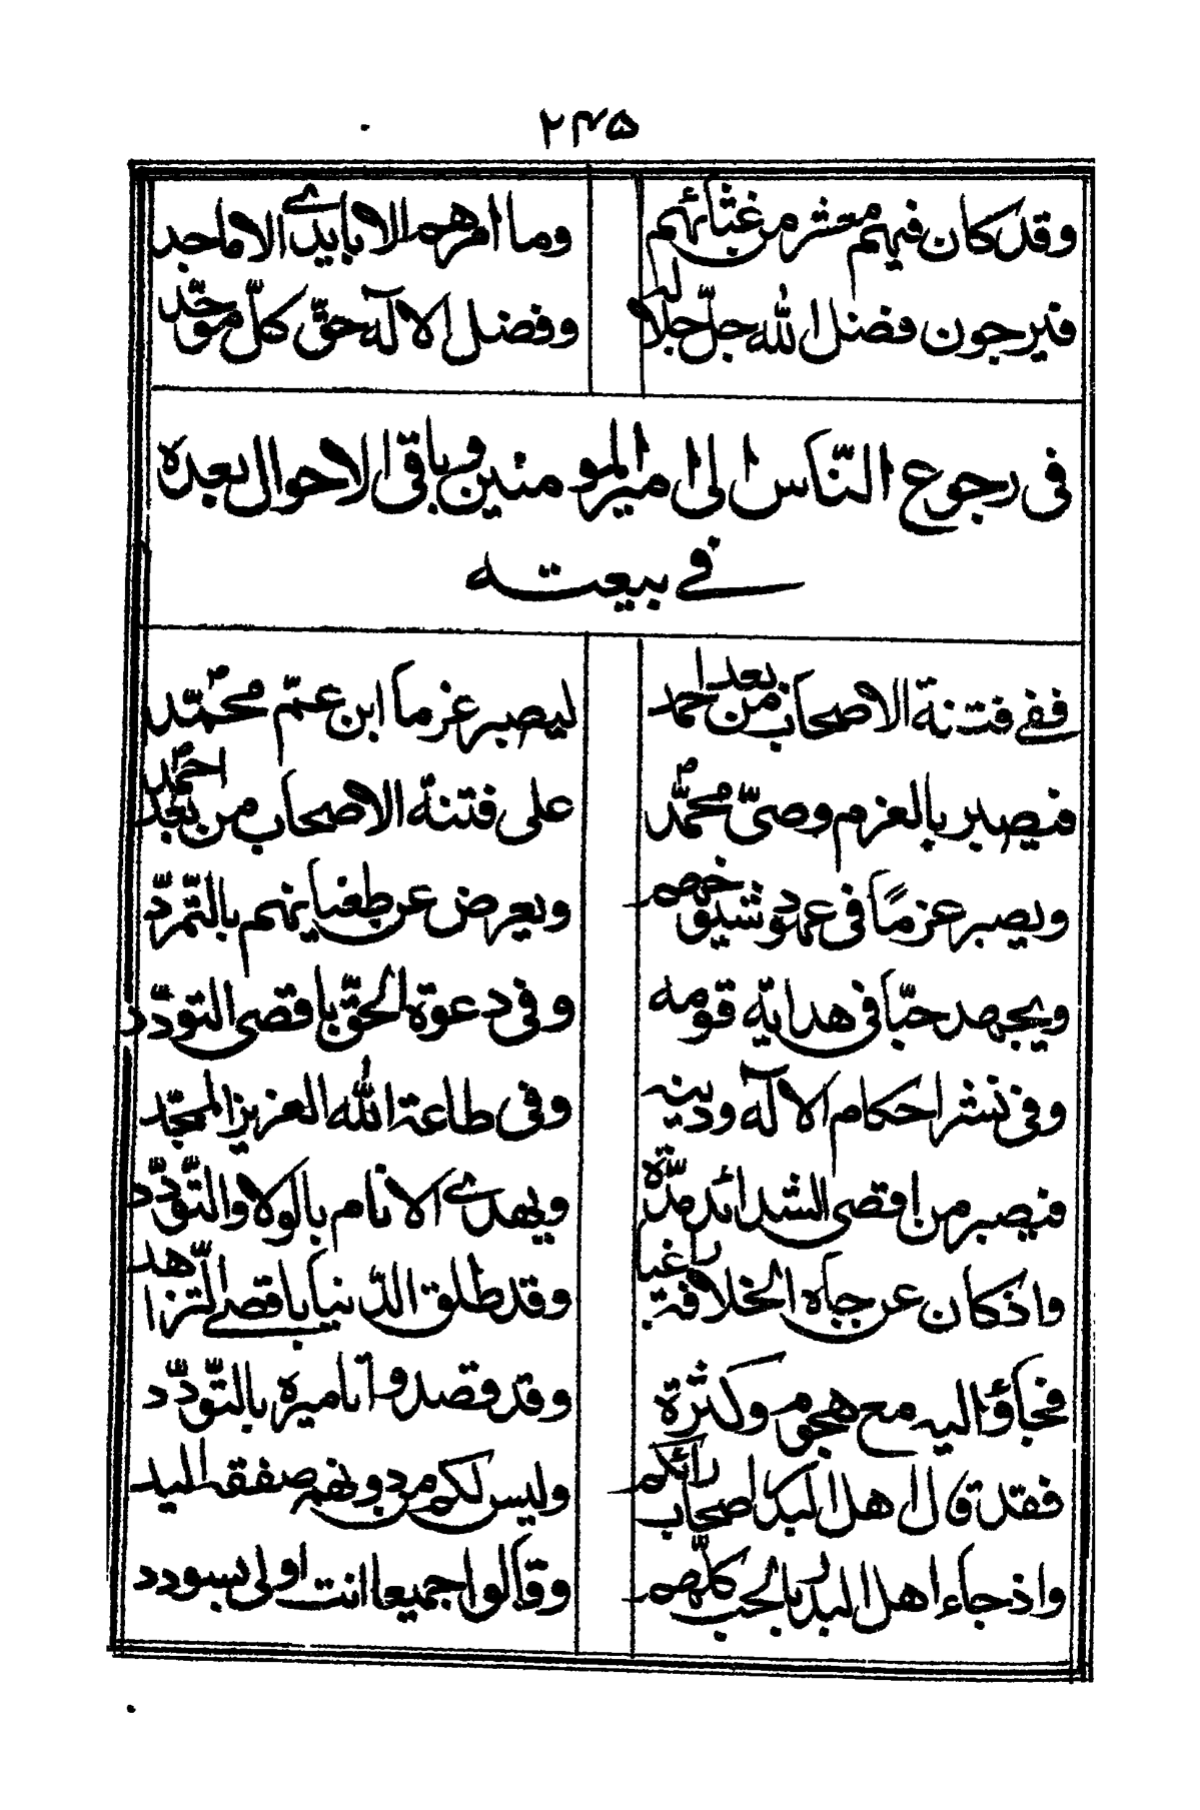 ۲۴۵
وقد كان فيهم منتشر من غثائهم وما امرهم الا بايدى الاماجد
فيرجون فضل الله جل جلاله وفضل الاله حق كلّ موحّد
فى رجوع النّاس الى امير المومنين وباقى الاحوال بعده
فى بيعته
ففى فتنة الاصحاب من بعد احمد ليصبر عزما ابن عمّ محمّد ص
فيصبر بالعزم وصىّ محمّد ص على فتنة الاصحاب من بعد احمد ص
ويصبر عزمًا فى عمود شيق خصهم ويعرض عن طغيانهم بالتّمرّد
ويجهد حبّا فى هداية قومه وفى دعوة الحقّ باقصى التودّد
وفى نشر احكام الاله ودينه وفى طاعة الله العزيز الممجّد
فيصبر من اقصى الشدائد مدّة ويهدى الانام بالولا والتّودّد
واذ كان عن جاه الخلافة راغبا وقد طلق الدّنيا باقصى التزاهد
فجاؤا اليه مع هجوم وكثرة وقد قصدوا تاميره بالتّودّد
فقد قال اهل البدر اصحاب رائكم وليس لكم من دونهم صفقه اليد
واذ جاء اهل البدر بالحب كلّهم وقالوا جميعا انت اولى بسودد